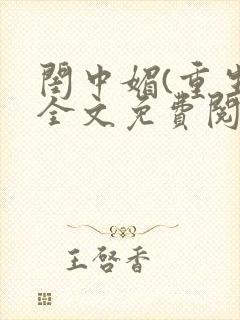 閨中媚(重生
全文免費閱
王啓香